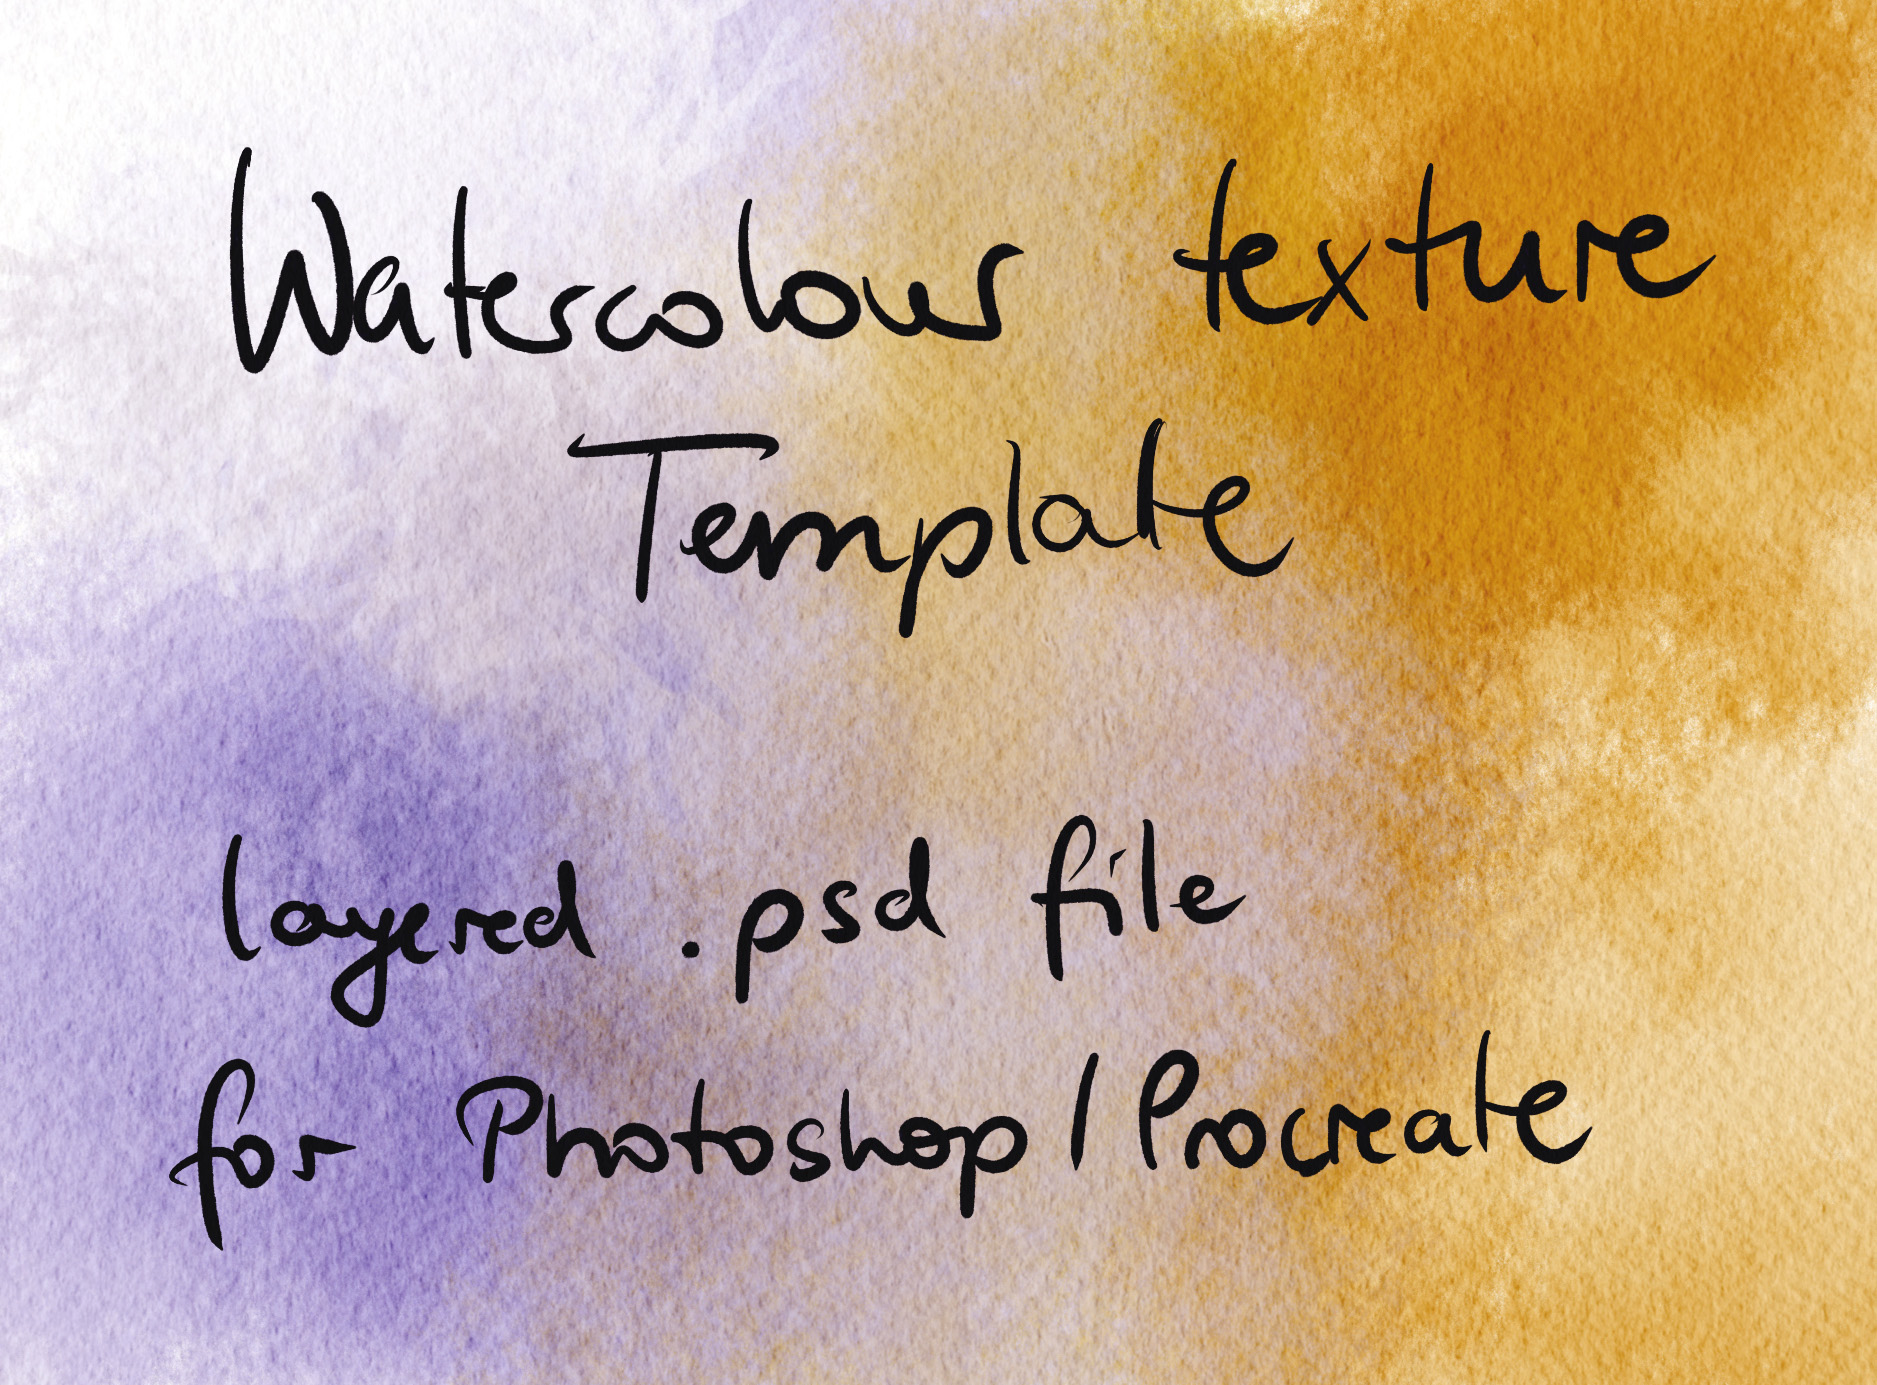 Watercolour texture
Template
layered .psd file
for Photoshop/Procreate